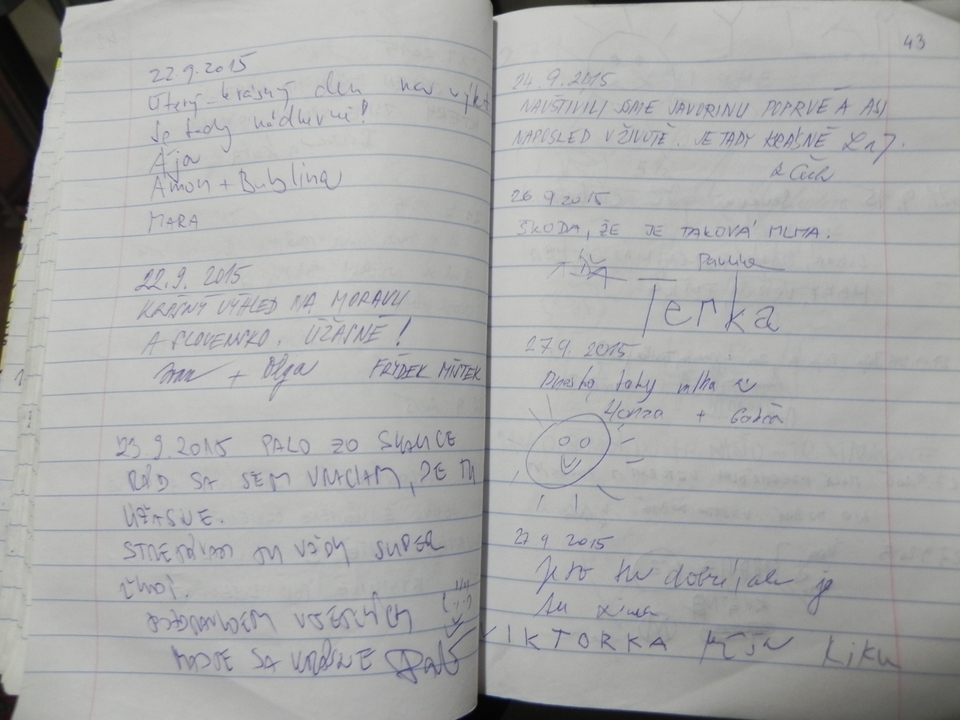 22.9.2015
Úterý - krásný den na výlet
Je tady nádherně!
Ája
Amon + Bublina
MARA
22.9. 2015
KRÁSNÝ VÝHLED NA MORAVU
A SLOVENSKO. ÚŽASNÉ!
Ivan + Olga FRÝDEK MÍSTEK
23 9.2015 PALO ZO SKALICE
RÁD SA SEM VRACIAM, JE TU
ÚŽASNE.
STRETÁVAM TU VŽDY SUPER
ĽUDÍ.
POZDRAVUJEM VŠETKÝCH
MAJTE SA KRÁSNE Palo
43
24.9.2015
NAVŠTÍVILI JSME JAVORINU POPRVÉ A ASI
NAPOSLED V ŽIVOTĚ. JE TADY KRÁSNĚ
z Čech
26.9 2015
ŠKODA, ŽE JE TAKOVÁ MLHA.
Pavla
Terka
27.9. 2015
Dneska taky mlha
Honza +
27 9 2015
Je to tu dobrý, ale je
tu zima
VIKTORKA Kája Kiku